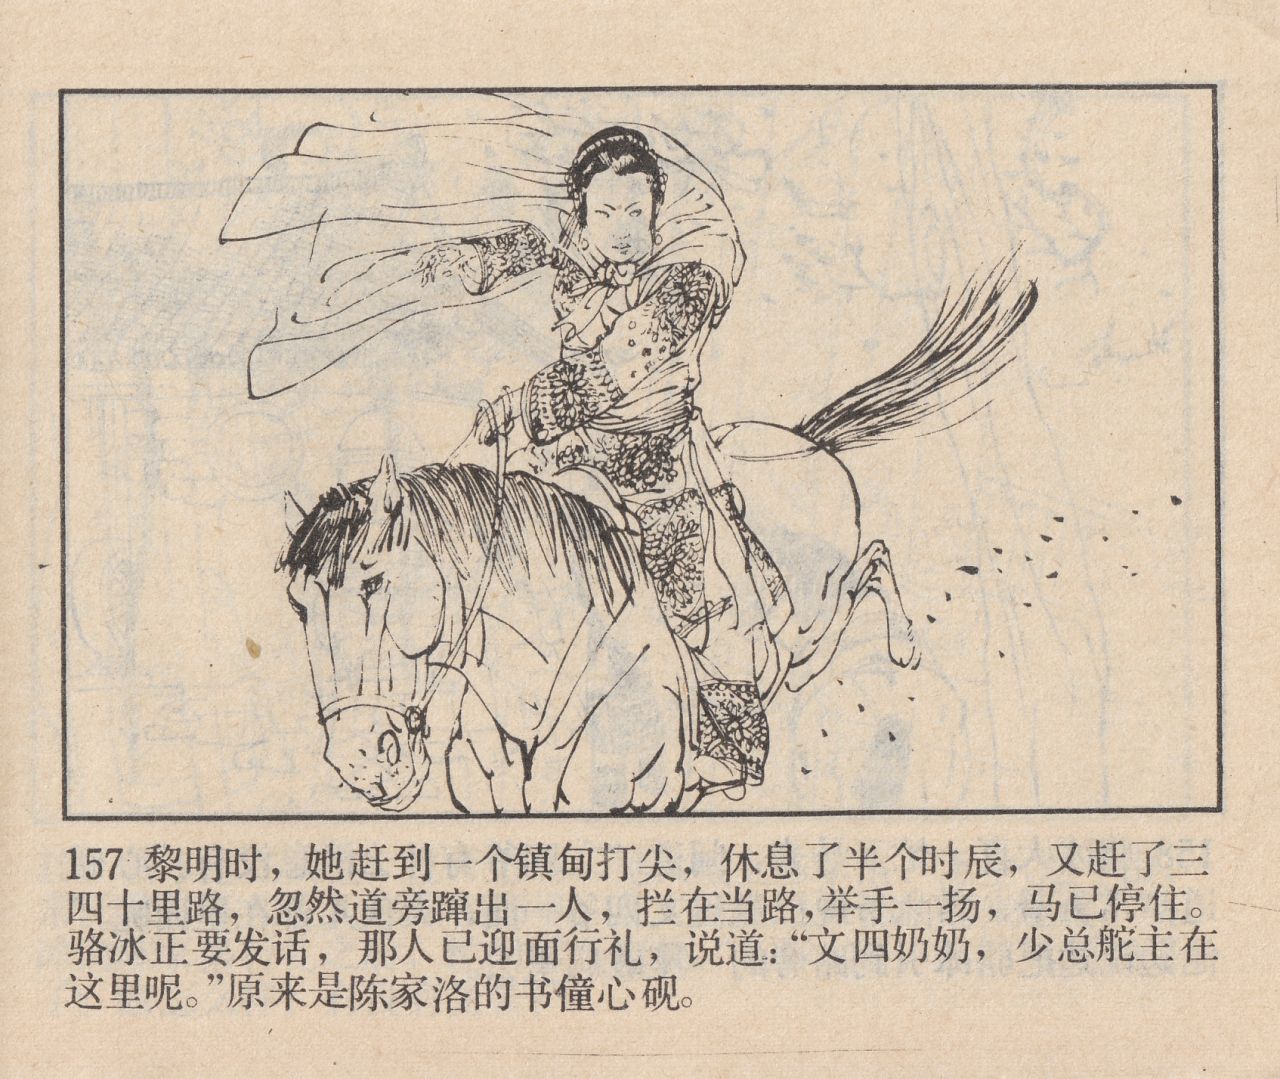 157 黎明时，她赶到一个镇甸打尖，休息了半个时辰，又赶了三
四十里路，忽然道旁蹿出一人，拦在当路，举手一扬，马已停住。
骆冰正要发话，那人已迎面行礼，说道：“文四奶奶，少总舵主在
这里呢。”原来是陈家洛的书僮心砚。